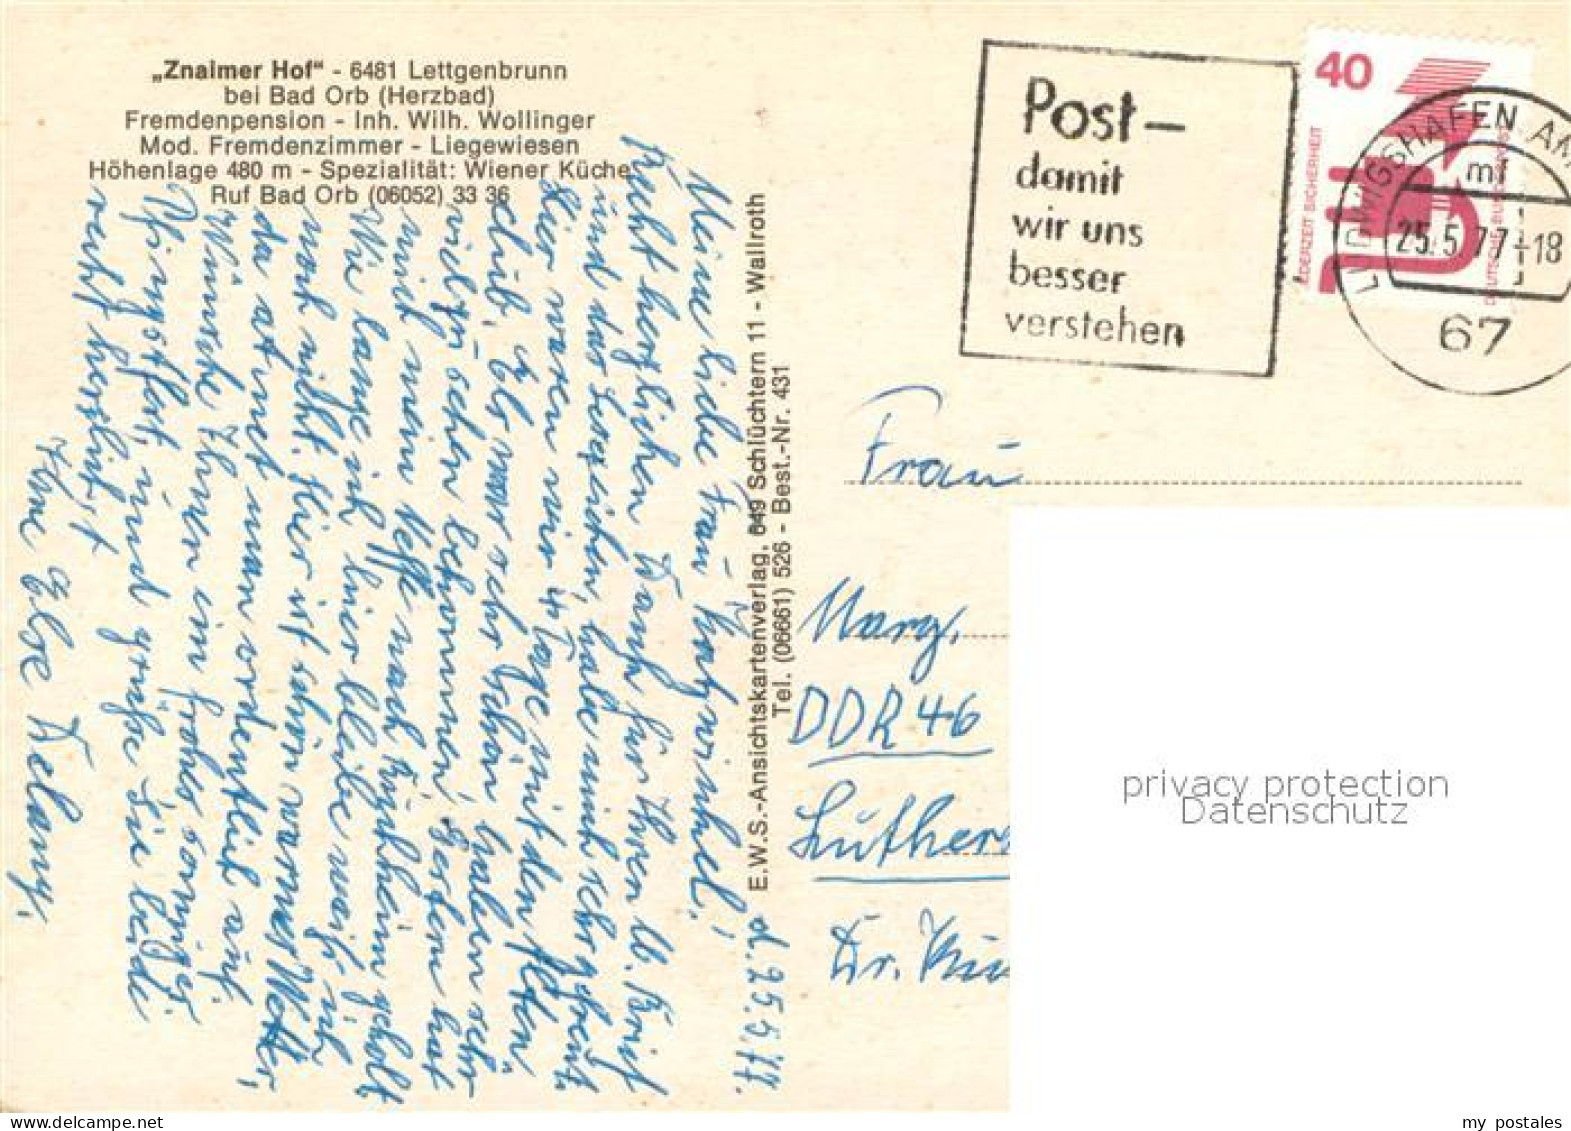 „Znaimer Hof“ - 6481 Lettgenbrunn
bei Bad Orb (Herzbad)
Fremdenpension - Inh. Wilh. Wollinger
Mod. Fremdenzimmer - Liegewiesen
Höhenlage 480 m - Spezialität: Wiener Küche
Ruf Bad Orb (06052) 33 36
d. 25.5.77.
Meine liebe Frau
Recht herzlichen Dank für Ihren lb. Brief
und das habe mich sehr gefreut.
Hier waren wir 4 Tage mit den
club. Es war sehr schön haben sehr
viel zu sehen bekommen. Gestern hat
mich mein Neffe nach geholt.
Wie lange ich hier bleibe weiß ich
noch nicht. Hier ist schön warmes Wetter,
da atmet man ordentlich auf.
Wünsche Ihnen ein frohes sonniges
Pfingstfest, und grüße Sie beide
recht herzlichst
Ihre Else
E.W.S.-Ansichtskartenverlag, 649 Schlüchtern 11 - Wallroth
Tel. (06661) 526 - Best.-Nr. 431
Post-
damit
wir uns
besser
verstehen
40
JEDERZEIT SICHERHEIT
DEUTSCHE BUNDESPOST
LUDWIGSHAFEN AM
mf
25.5.77-18
67
Frau
Marg.
DDR 46
Luthers
privacy protection
Datenschutz
delcampe.net
my_postales